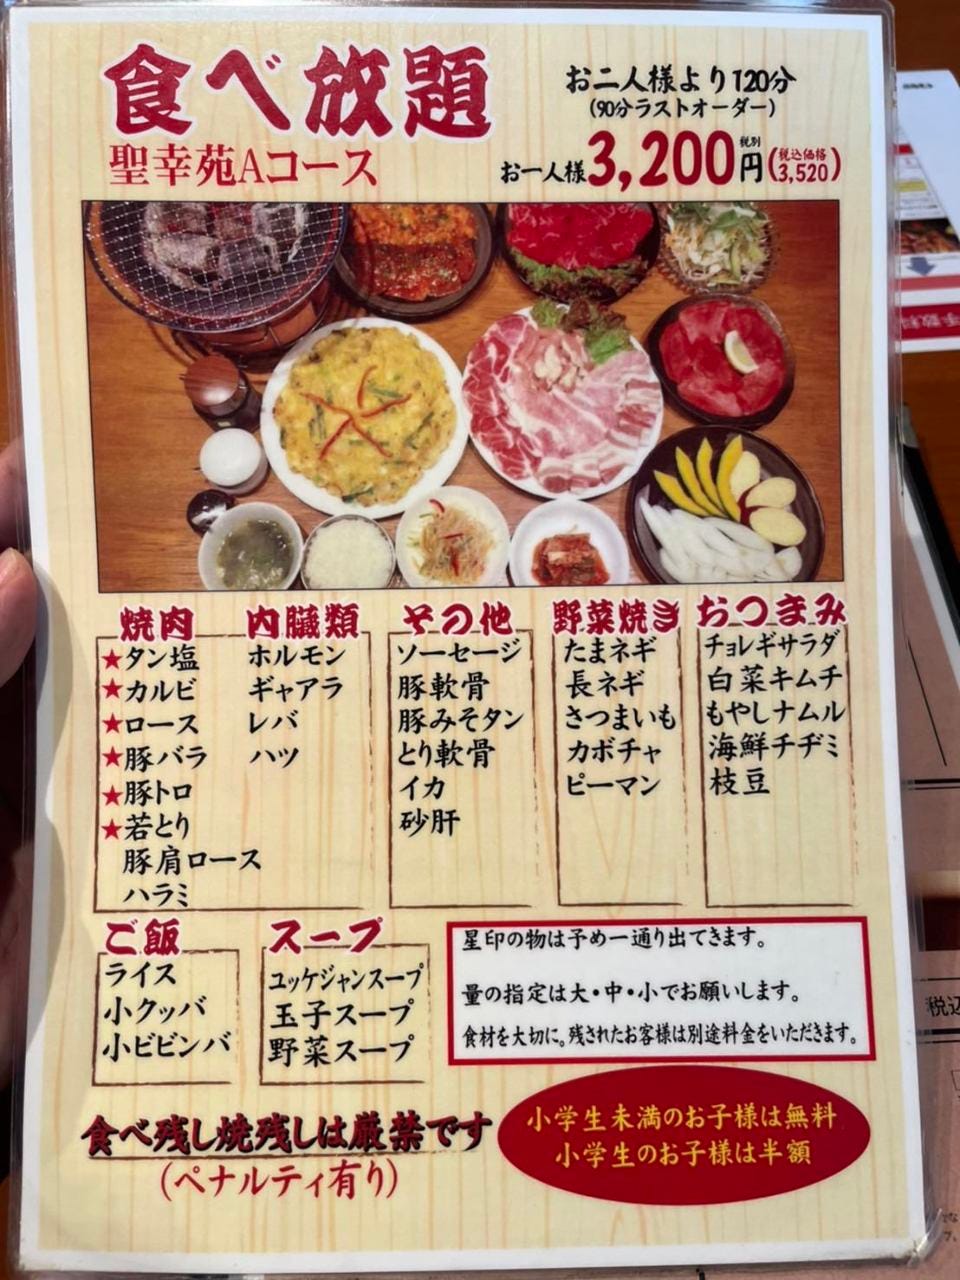 食べ放題
聖幸苑Aコース
お二人様より120分
(90分ラストオーダー)
お一人様3,200円税別(税込価格3,520)
焼肉
★タン塩
★カルビ
★ロース
★豚バラ
★豚トロ
★若とり
豚肩ロース
ハラミ
内臓類
ホルモン
ギャアラ
レバ
ハツ
その他
ソーセージ
豚軟骨
豚みそタン
とり軟骨
イカ
砂肝
野菜焼き
たまネギ
長ネギ
さつまいも
カボチャ
ピーマン
おつまみ
チョレギサラダ
白菜キムチ
もやしナムル
海鮮チヂミ
枝豆
ご飯
ライス
小クッパ
小ビビンバ
スープ
ユッケジャンスープ
玉子スープ
野菜スープ
星印の物は予め一通り出てきます。
量の指定は大・中・小でお願いします。
食材を大切に。残されたお客様は別途料金をいただきます。
食べ残し焼残しは厳禁です
(ペナルティ有り)
小学生未満のお子様は無料
小学生のお子様は半額
税込